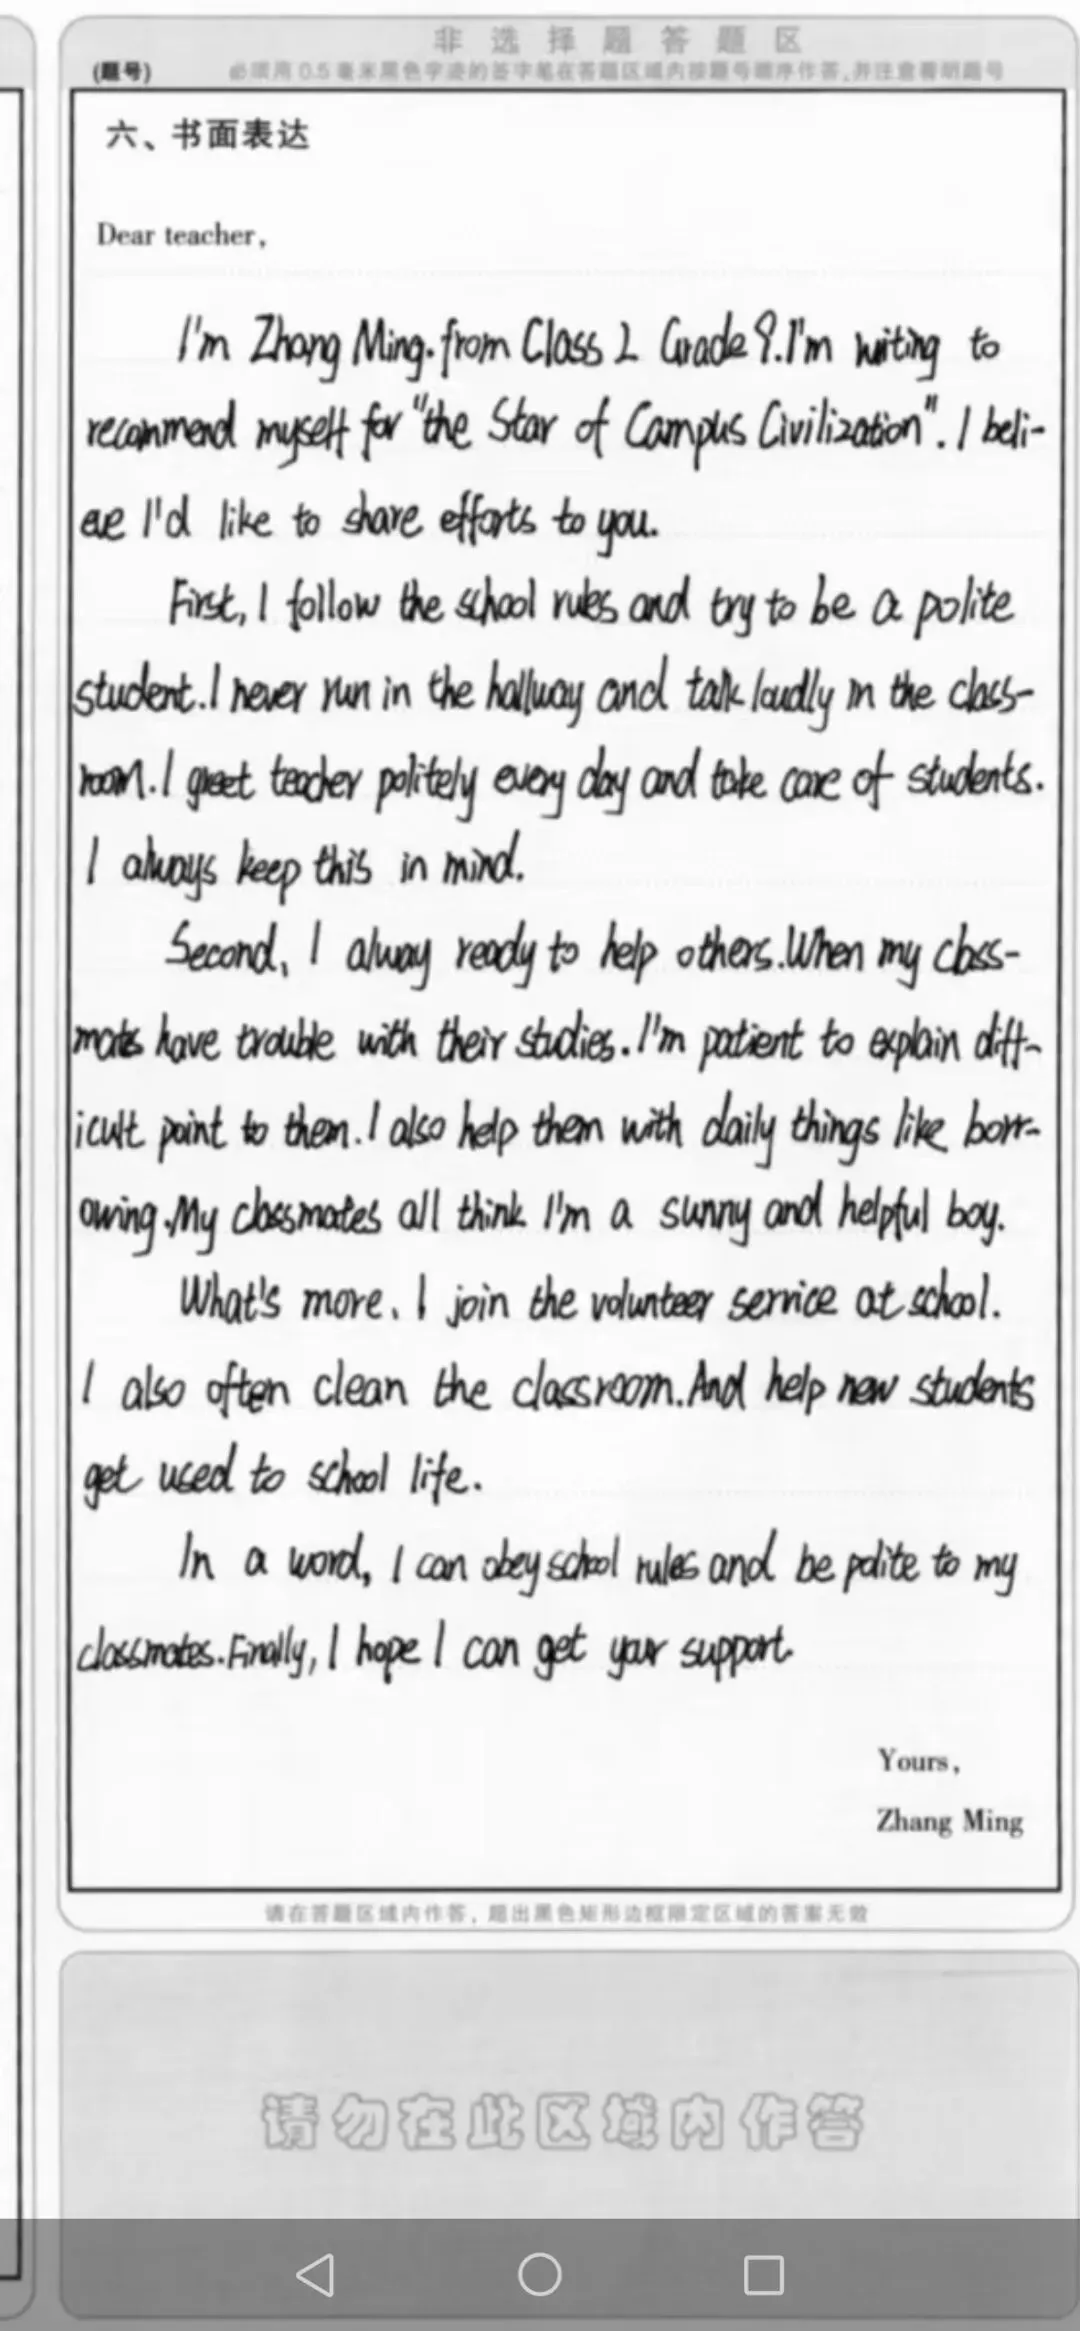 非选择题答题区
(题号)
必须用0.5毫米黑色字迹的签字笔在答题区域内按题号顺序作答,并注意看明题号
六、书面表达
Dear teacher,
I'm Zhang Ming. from Class 2 Grade 9. I'm writing to
recommend myself for "the Star of Campus Civilization". I beli-
eve I'd like to share efforts to you.
First, I follow the school rules and try to be a polite
student. I never run in the hallway and talk loudly in the class-
room. I greet teacher politely every day and take care of students.
I always keep this in mind.
Second, I alway ready to help others. When my class-
mates have trouble with their studies. I'm patient to explain diff-
icult point to them. I also help them with daily things like borr-
owing. My classmates all think I'm a sunny and helpful boy.
What's more, I join the volunteer service at school.
I also often clean the classroom. And help new students
get used to school life.
In a word, I can obey school rules and be polite to my
classmates. Finally, I hope I can get your support.
Yours,
Zhang Ming
请在答题区域内作答, 超出黑色矩形边框限定区域的答案无效
请勿在此区域内作答